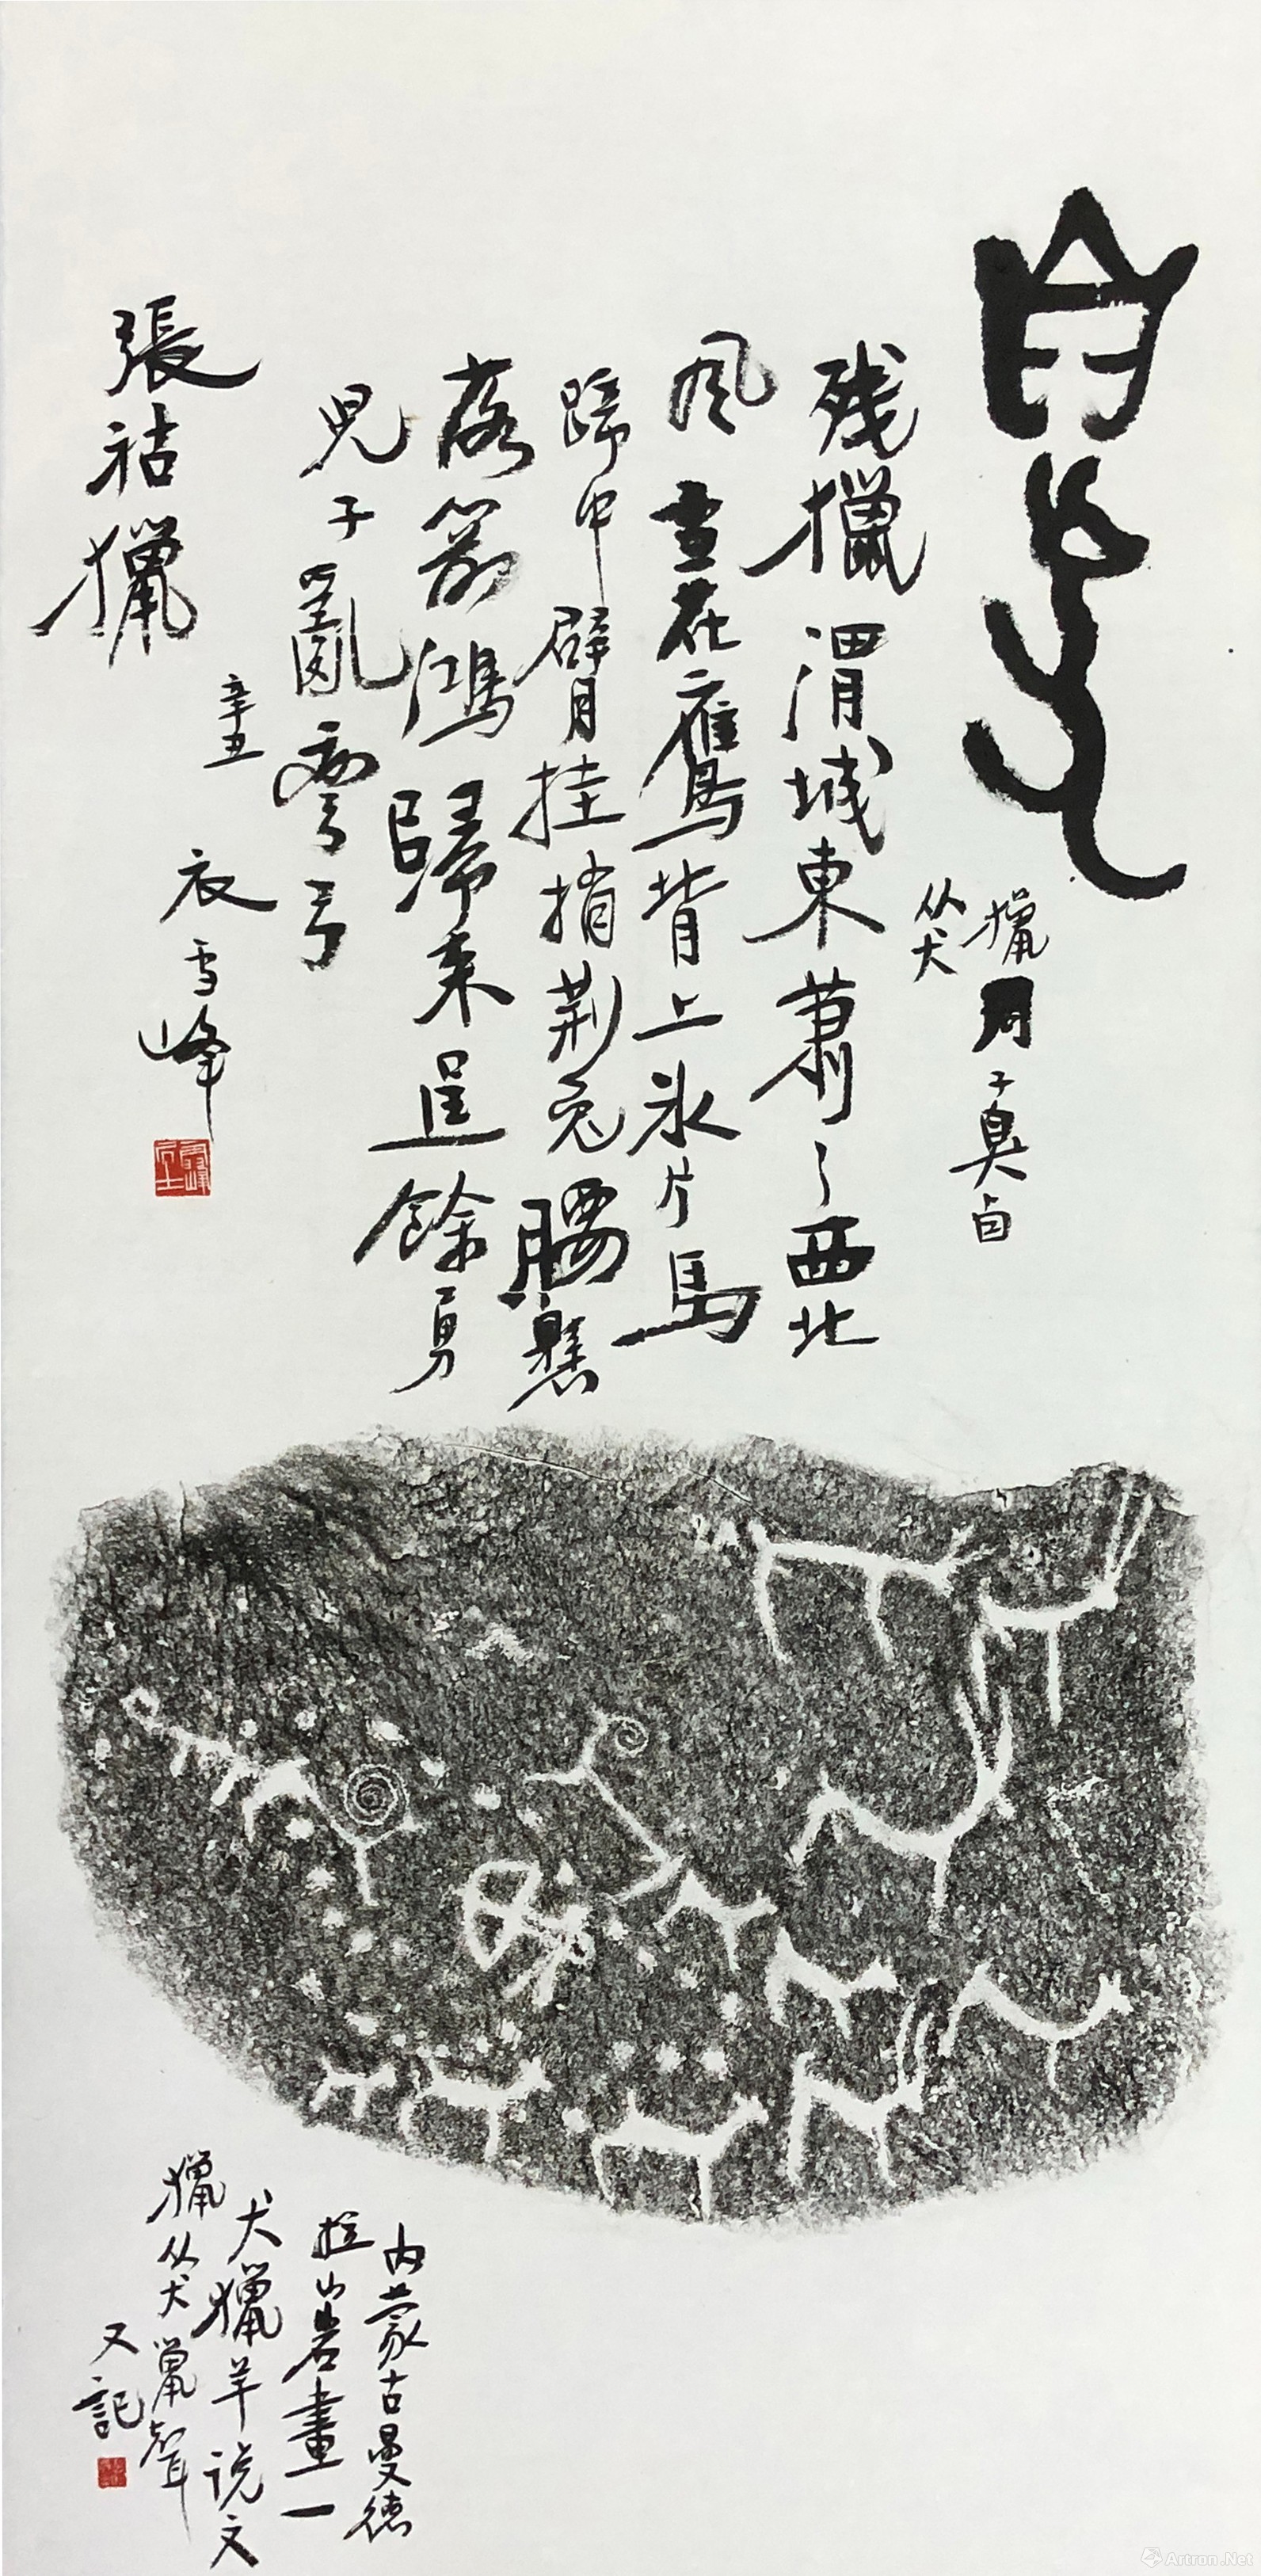 獵周子臭卣
从犬
残獵渭城東蕭々西北
风雪花鷹背上氷片馬
蹄中臂挂捎荆兔腰懸
落箭鴻歸来逞餘勇
兒子亂彎弓
張祜獵
辛丑
衣雪峰
内蒙古曼德
拉山岩畫一
犬獵羊说文
獵从犬巤聲
又記
Artron.Net